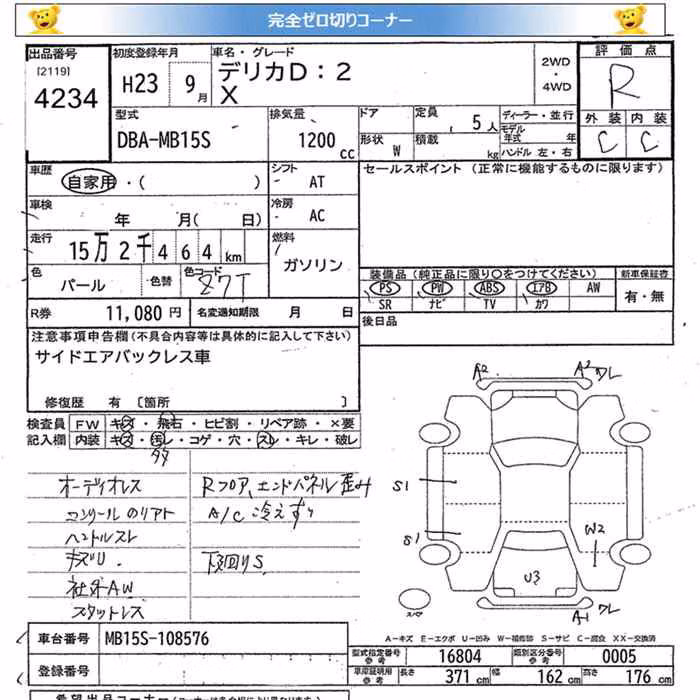 完全ゼロ切りコーナー
出品番号 初度登録年月 車名・グレード 評価点
[2119] H23 9月 デリカD:2 2WD・4WD R
4234 X
外装 内装
型式 排気量 ドア 定員 5人 ディーラー・並行 C C
DBA-MB15S 1200cc 形状 W 積載 kg モデル年式 年
ハンドル 左・右
車歴 シフト セールスポイント (正常に機能するものに限ります)
自家用・( ) - AT
車検 年 月( 日) 冷房 - AC
走行 15万2千464km 燃料 ガソリン
色 パール 色替 色コード Z7T
装備品(純正品に限り○をつけてください) 新車保証書
PS PW ABS エアB AW 有・無
SR ナビ TV カワ
R券 11,080円 名変通知期限 月 日 後日品
注意事項申告欄(不具合内容等は具体的に記入して下さい)
サイドエアバックレス車
修復歴 有 [箇所 ]
検査員 FW キズ・飛石・ヒビ割・リペア跡・×要
記入欄 内装 キズ・汚レ・コゲ・穴・スレ・キレ・破レ
多
オーディオレス Rフロア、エンドパネル歪み
コンソールのリアト A/C 冷えず
ヘッドレスト
キズU 下回りS
社外AW
スタットレス
A2 A2 ワレ
S1
S1 W2
U3
スペア A-1 ワレ
A-キズ E-エクボ U-凹み W-補修跡 S-サビ C-腐食 XX-交換済
車台番号 MB15S-108576
登録番号
型式指定番号 参考 16804 類別区分番号 参考 0005
車庫証明用 参考 長さ 371cm 幅 162cm 高さ 176cm
希望出品コーナー